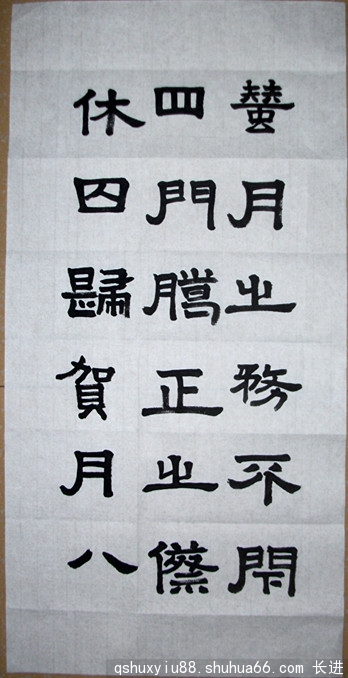 蠶月之務不閇
四門騰正之傺
休囚歸賀月八
qshuxyiu88.shuhua66.com 长进